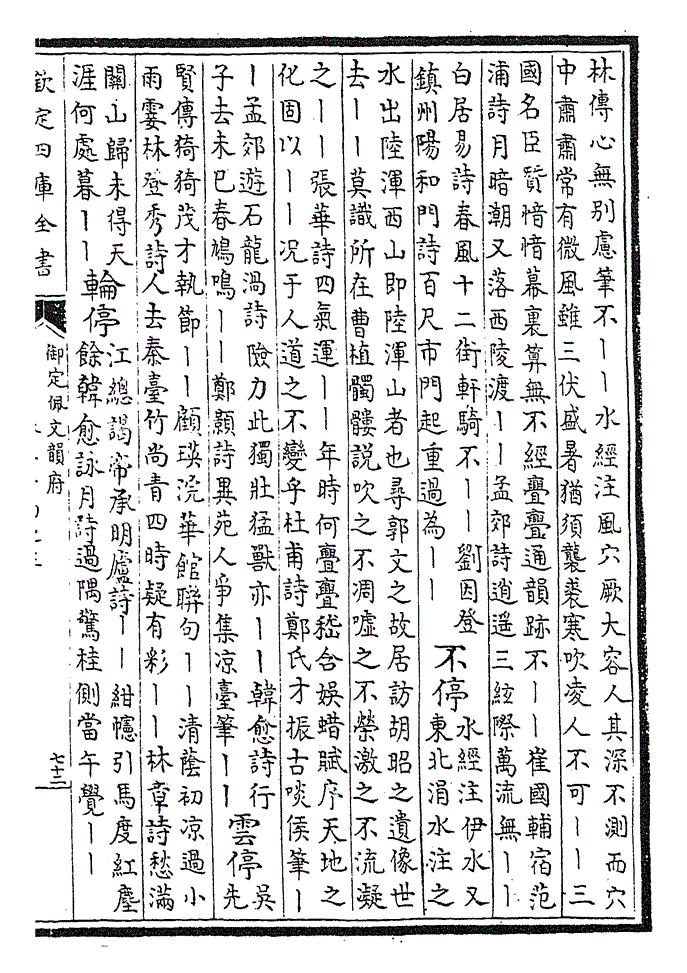 林傳心無别慮筆不丨丨水經注風穴厥大容人其深不測而穴
中肅肅常有微風雖三伏盛暑猶須襲裘寒吹凌人不可丨丨三
國名臣贊愔愔幕裏算無不經亹亹通韻跡不丨丨崔國輔宿范
浦詩月暗潮又落西陵渡丨丨孟郊詩逍遥三絃際萬流無丨丨
白居易詩春風十二街軒騎不丨丨劉因登
鎮州陽和門詩百尺市門起重過為丨丨
不停
水經注伊水又
東北涓水注之
水出陸渾西山即陸渾山者也尋郭文之故居訪胡昭之遺像世
去丨丨莫識所在曹植髑髏説吹之不凋嘘之不榮激之不流凝
之丨丨張華詩四氣運丨丨年時何亹亹嵇含娯蜡賦序天地之
化固以丨丨况于人道之不變乎杜甫詩鄭氏才振古啖侯筆丨
丨孟郊遊石龍渦詩險力此獨壯猛獸亦丨丨韓愈詩行
子去未已春鳩鳴丨丨鄭顥詩異苑人爭集凉臺筆丨丨
雲停
吳
先
賢傳猗猗茂才執節丨丨顧瑛浣華館聯句丨丨清蔭初凉過小
雨霎林登秀詩人去秦臺竹尚青四時疑有彩丨丨林章詩愁滿
關山歸未得天
涯何處暮丨丨
輪停
江總謁帝承明廬詩丨丨紺幰引馬度紅塵
餘韓愈詠月詩過隅驚桂側當午覺丨丨
欽定四庫全書
御定佩文韻府
七十三